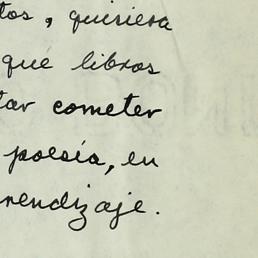 tos, quisiera
que libros
tar cometer
poesía, en
rendizaje.